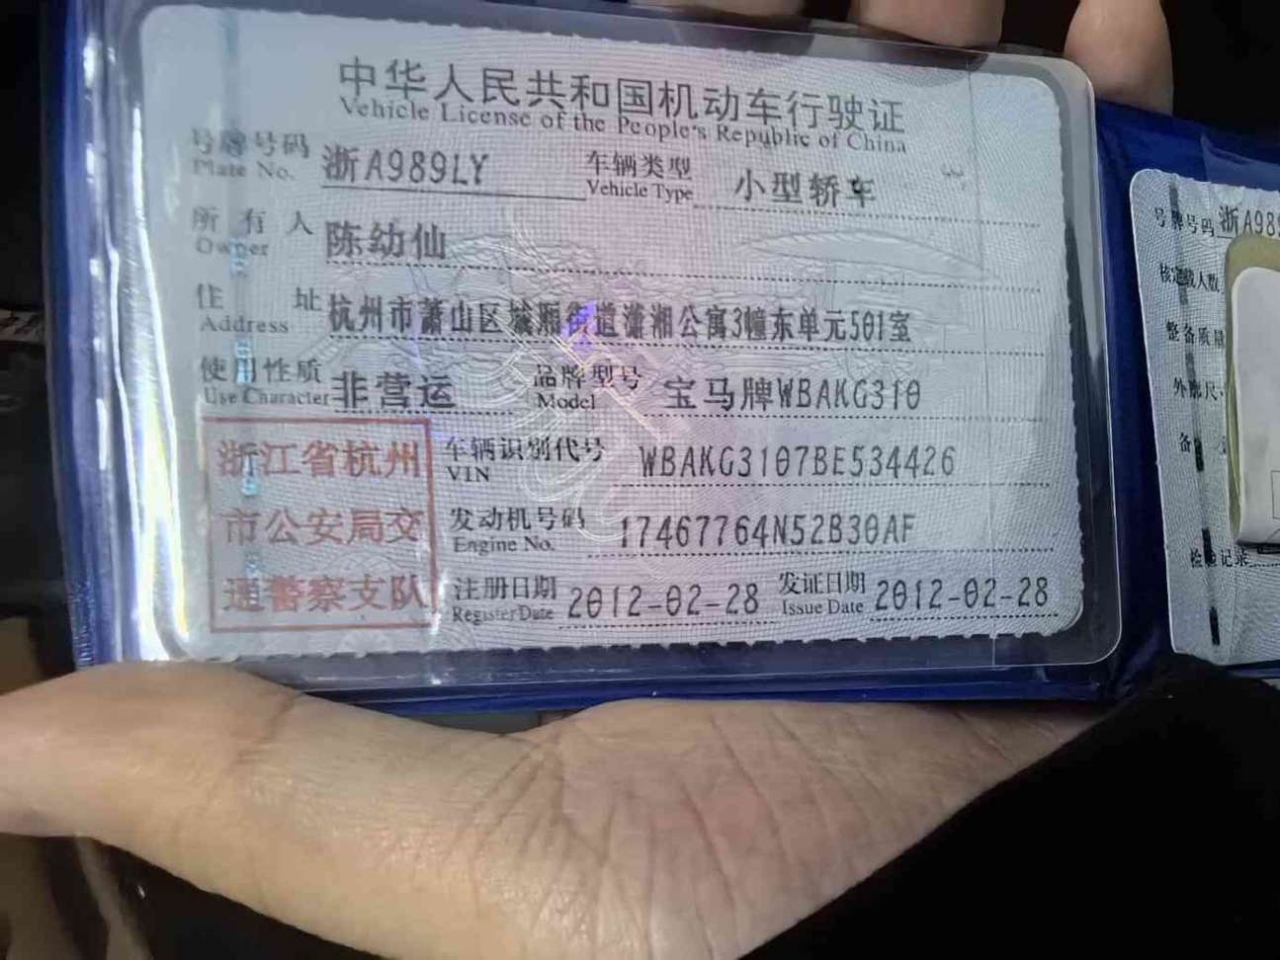 中华人民共和国机动车行驶证
Vehicle License of the People's Republic of China
号牌号码 浙A989LY 车辆类型 小型轿车
Plate No. Vehicle Type
所有人 陈幼仙
Owner
住址 杭州市萧山区城厢街道潇湘公寓3幢东单元501室
Address
使用性质 非营运 品牌型号 宝马牌WBAKG310
Use Character Model
浙江省杭州
市公安局交
通警察支队
车辆识别代号 WBAKG3107BE534426
VIN
发动机号码 17467764N52B30AF
Engine No.
注册日期 2012-02-28 发证日期 2012-02-28
Register Date Issue Date
号牌号码 浙A989
核定载人数
整备质量
外廓尺
备
检验记录